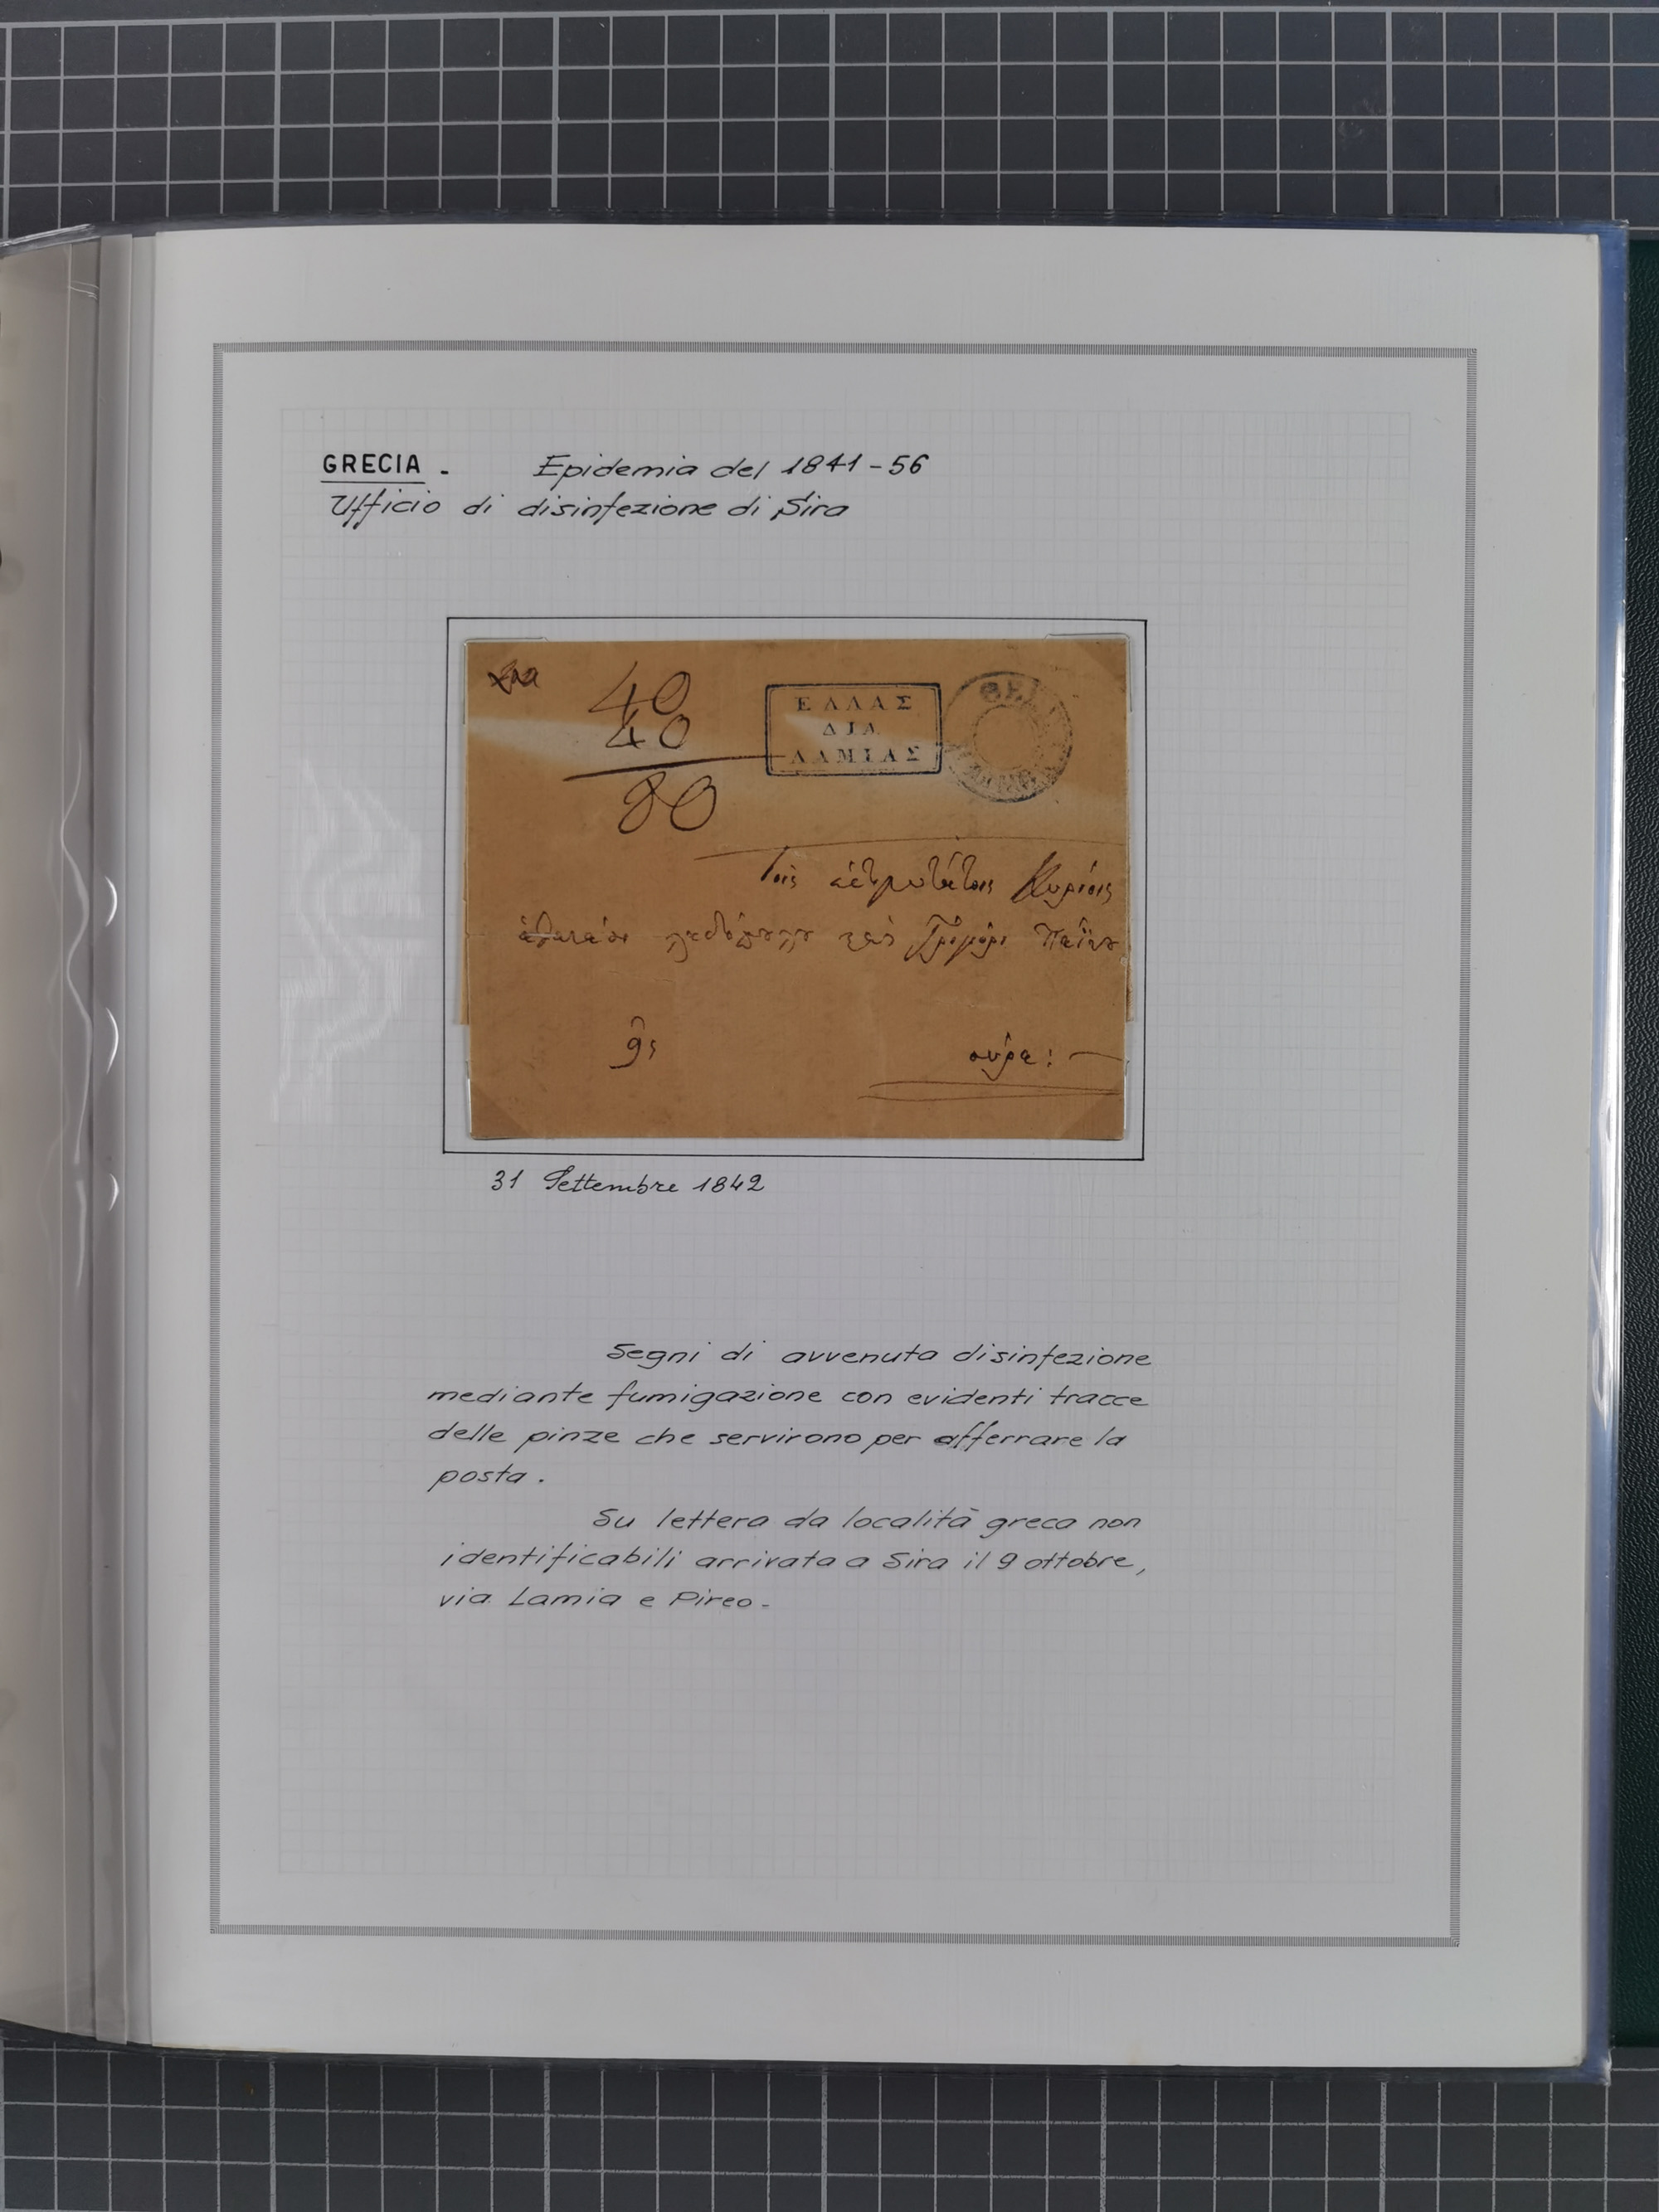 GRECIA - Epidemia del 1841-56
Ufficio di disinfezione di Sira
40
40
80
ΕΛΛΑΣ
ΔΙΑ
ΛΑΜΙΑΣ
Τοις Κυρίοις
σύρα:
31 Settembre 1842
Segni di avvenuta disinfezione
mediante fumigazione con evidenti tracce
delle pinze che servirono per afferrare la
posta.
Su lettera da località greca non
identificabili arrivata a Sira il 9 ottobre,
via Lamia e Pireo-